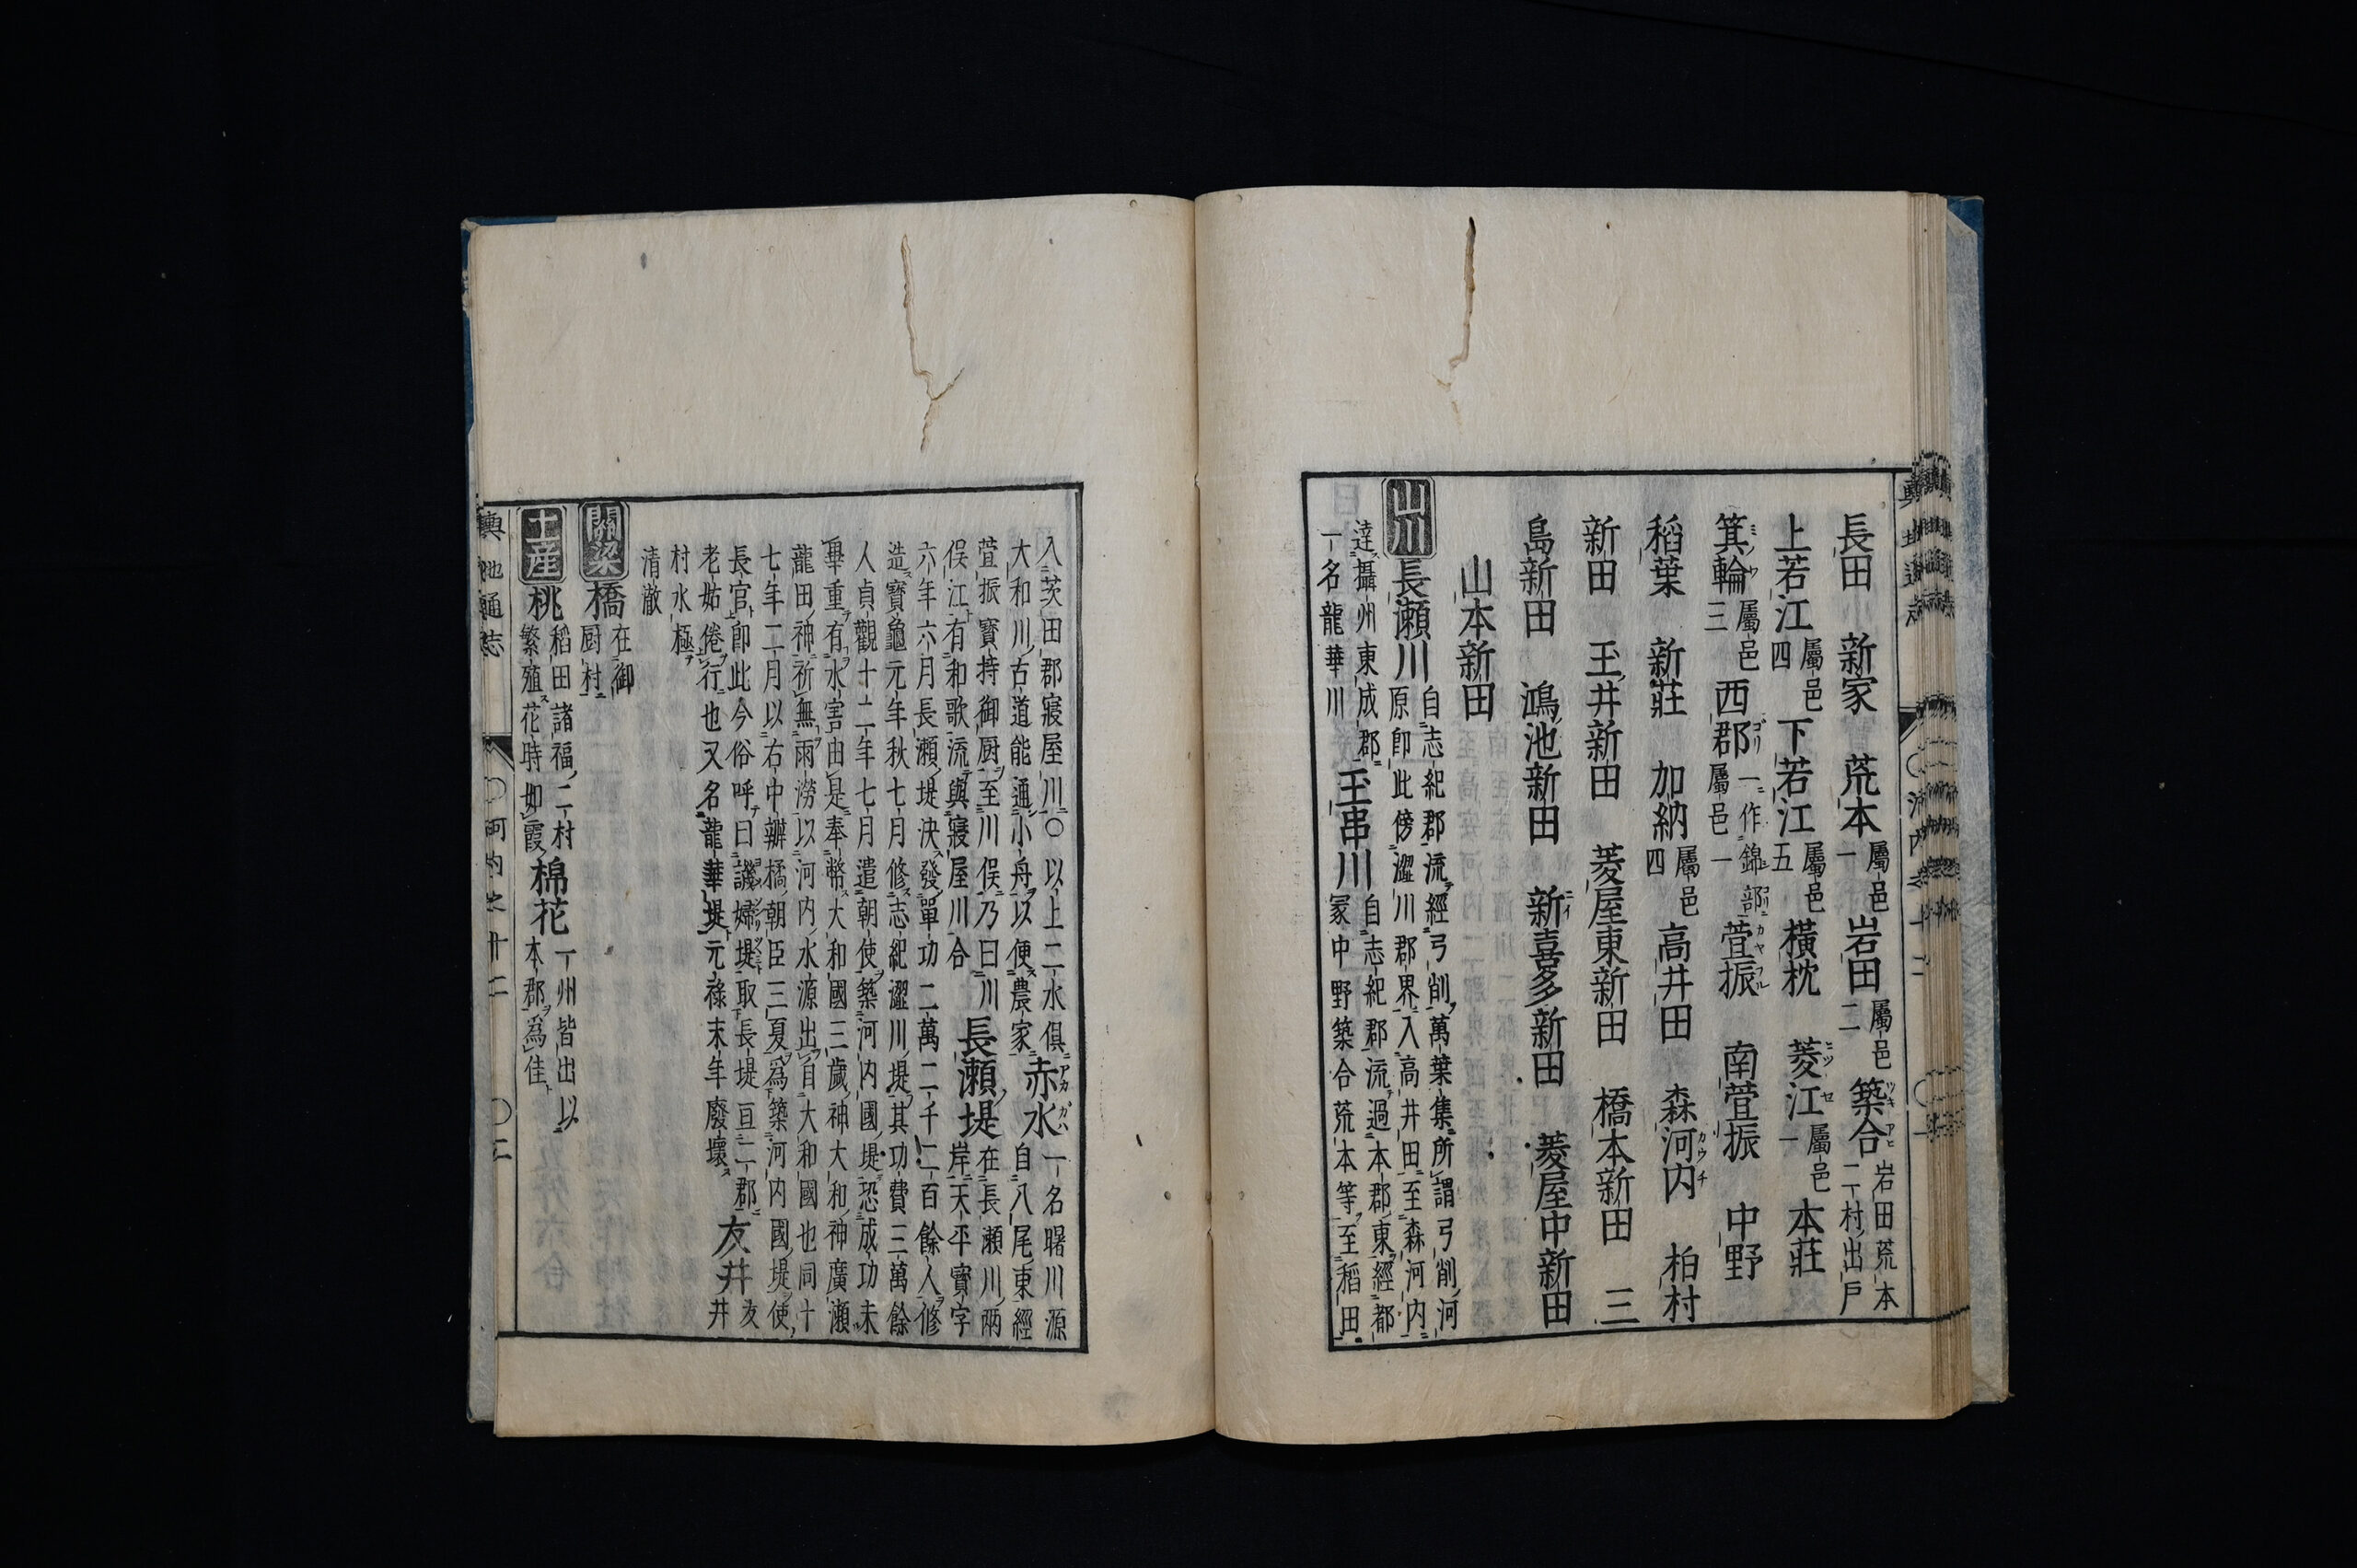 長田 新家 荒本 屬邑一 岩田 屬邑二 築合 岩田荒本二村出戸
上若江 屬邑四 下若江 屬邑五 橫枕 菱江 屬邑一 本莊
箕輪 屬邑三 西郡 一作錦部屬邑一 萱振 南萱振 中野
稻葉 新莊 加納 屬邑四 高井田 森河内 柏村
新田 玉井新田 菱屋東新田 橋本新田 三
島新田 鴻池新田 新喜多新田 菱屋中新田
山本新田
山川 長瀬川 自志紀郡流經弓削萬葉集所謂弓削河
原即此傍澀川郡界入高井田至森河内
達攝州東成郡 玉串川 自志紀郡流過本郡東經都
一名龍華川 冡中野築合荒本等至稻田
入茨田郡寢屋川○以上二水俱 赤水 一名曙川源
大和川古道能通小舟以便農家 自八尾東經
萱振寶持御厨至川俣乃曰川 長瀬堤 在長瀬川兩
俣江有和歌流與寢屋川合 岸天平寶字
六年六月長瀬堤決發單功二萬二千二百餘人修
造寶龜元年秋七月修志紀澀川堤其功費三萬餘
人貞觀十二年七月遣朝使築河内國堤恐成功未
畢重有水害由是奉幣大和國三歲神大和神廣瀬
龍田神祈無雨澇以河内水源出自大和國也同十
七年二月以右中辨橘朝臣三夏爲築河内國堤使
長官即此今俗呼曰譏婦堤取長堤亘二郡 友井 友
老姑倦行也又名龍華堤元祿末年廢壞 井
村水極
清澈
關梁 橋 在御
厨村
土産 桃 稻田諸福二村 棉花 一州皆出以
繁殖花時如霞 本郡爲佳
輿地通志 ○河内之十二 ○二